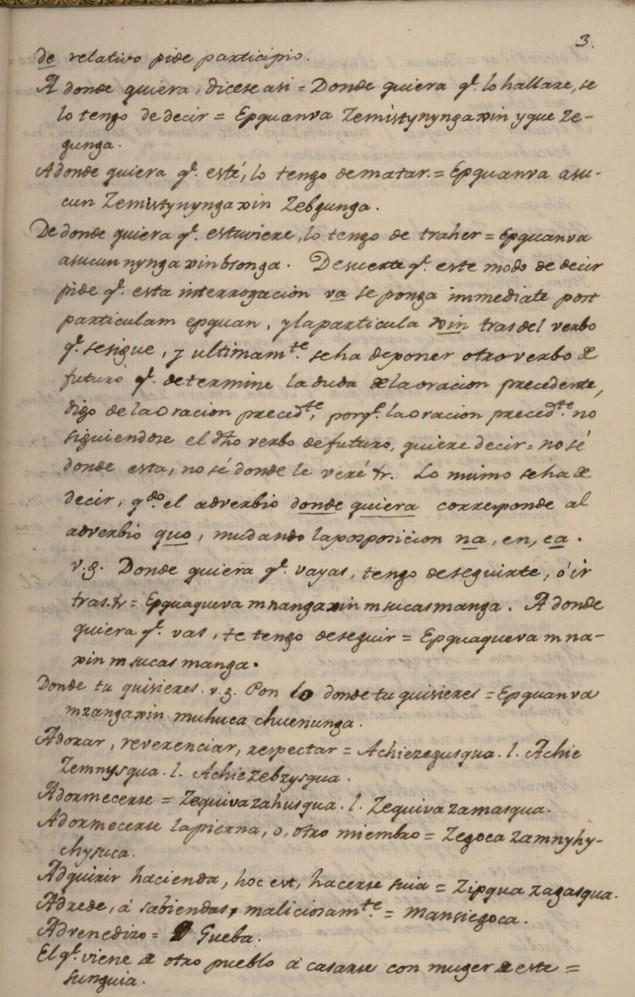 3.
de relativo pide participio.
A donde quiera, dicese asi = Donde quiera q.e lo hallare, se
lo tengo de decir = Epquanva Zemistynynga xin yque Ze-
gunga.
Adonde quiera q.e esté, lo tengo de matar. = Epquanva asu-
cun Zemistynynga xin Zebgunga.
De donde quiera q.e estuviere, lo tengo de traher = Epquanva
asucun nynga xin bsonga. Desuerte q.e este modo de decir
pide q.e esta interrogacion va se ponga immediate post
particulam epquan, y la particula xin tras del verbo
q.e se sigue, y ultimam.te se ha de poner otro verbo de
futuro q.e determine la duda de la oracion precedente,
digo de la oracion preced.te, porq.e la oracion preced.te no
siguiendose el dho verbo de futuro, quiere decir = no sé
donde esta, no sé donde le veré &. Lo mismo se ha de
decir, q.do el adverbio donde quiera corresponde al
adverbio quo, mudando la posposicion na, en, ca.
v.g. Donde quiera q.e vayas, tengo de seguirte, ó ir
tras. &. = Epquaqueva mnanga xin msucas manga. A donde
quiera q.e vas, te tengo de seguir = Epquaqueva mna-
xin msucas manga.
Donde tu quisieres. v.g. Pon lo donde tu quisieres = Epquanva
mzanga xin muhuca chuenunga.
Adorar, reverenciar, respectar = Achiezegusqua. l. Achie
Zemnysqua. l. Achiezebzysqua.
Adormecerse = Zequivazahusqua. l. Zequivazamasqua.
Adormecerse la pierna, o, otro miembro = Zegoca zamnyhy-
chysuca.
Adquirir hacienda, hoc est, hacerse suia = Zipqua zagasqua.
Adrede, á sabiendas, maliciosam.te = Mansiegoca.
Advenedizo = Gueba.
El q.e viene de otro pueblo á casarse con muger de este =
sunguia.